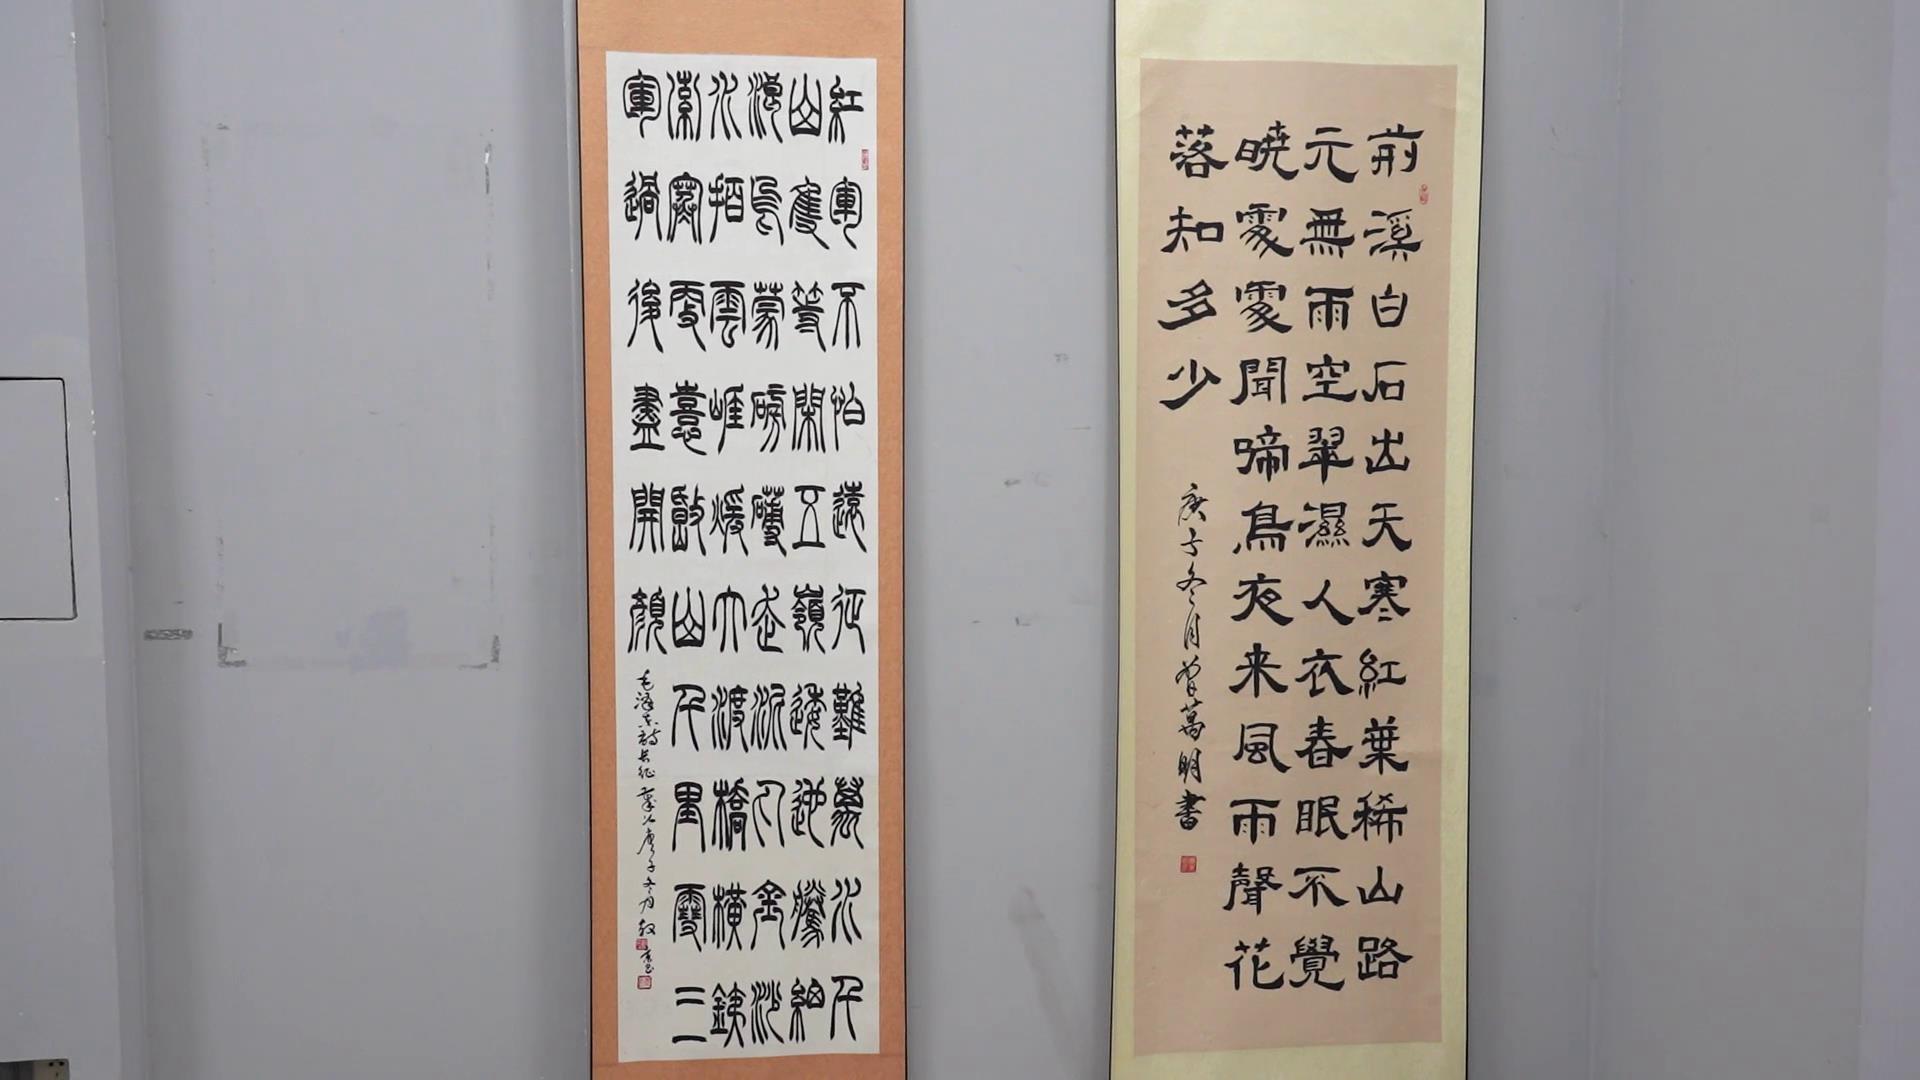 紅軍不怕遠征難萬水千
山隻等閑五嶺逶迤騰細
浪烏蒙磅礴走泥丸金沙
水拍雲崖煖大渡橋橫鐵
索寒更憙岷山千里雪三
軍過後盡開顏
毛泽东诗长征 歲次庚子冬月
荊溪白石出天寒紅葉稀山路
元無雨空翠濕人衣春眠不覺
曉處處聞啼鳥夜来風雨聲花
落知多少
庚子冬月曾萬明書